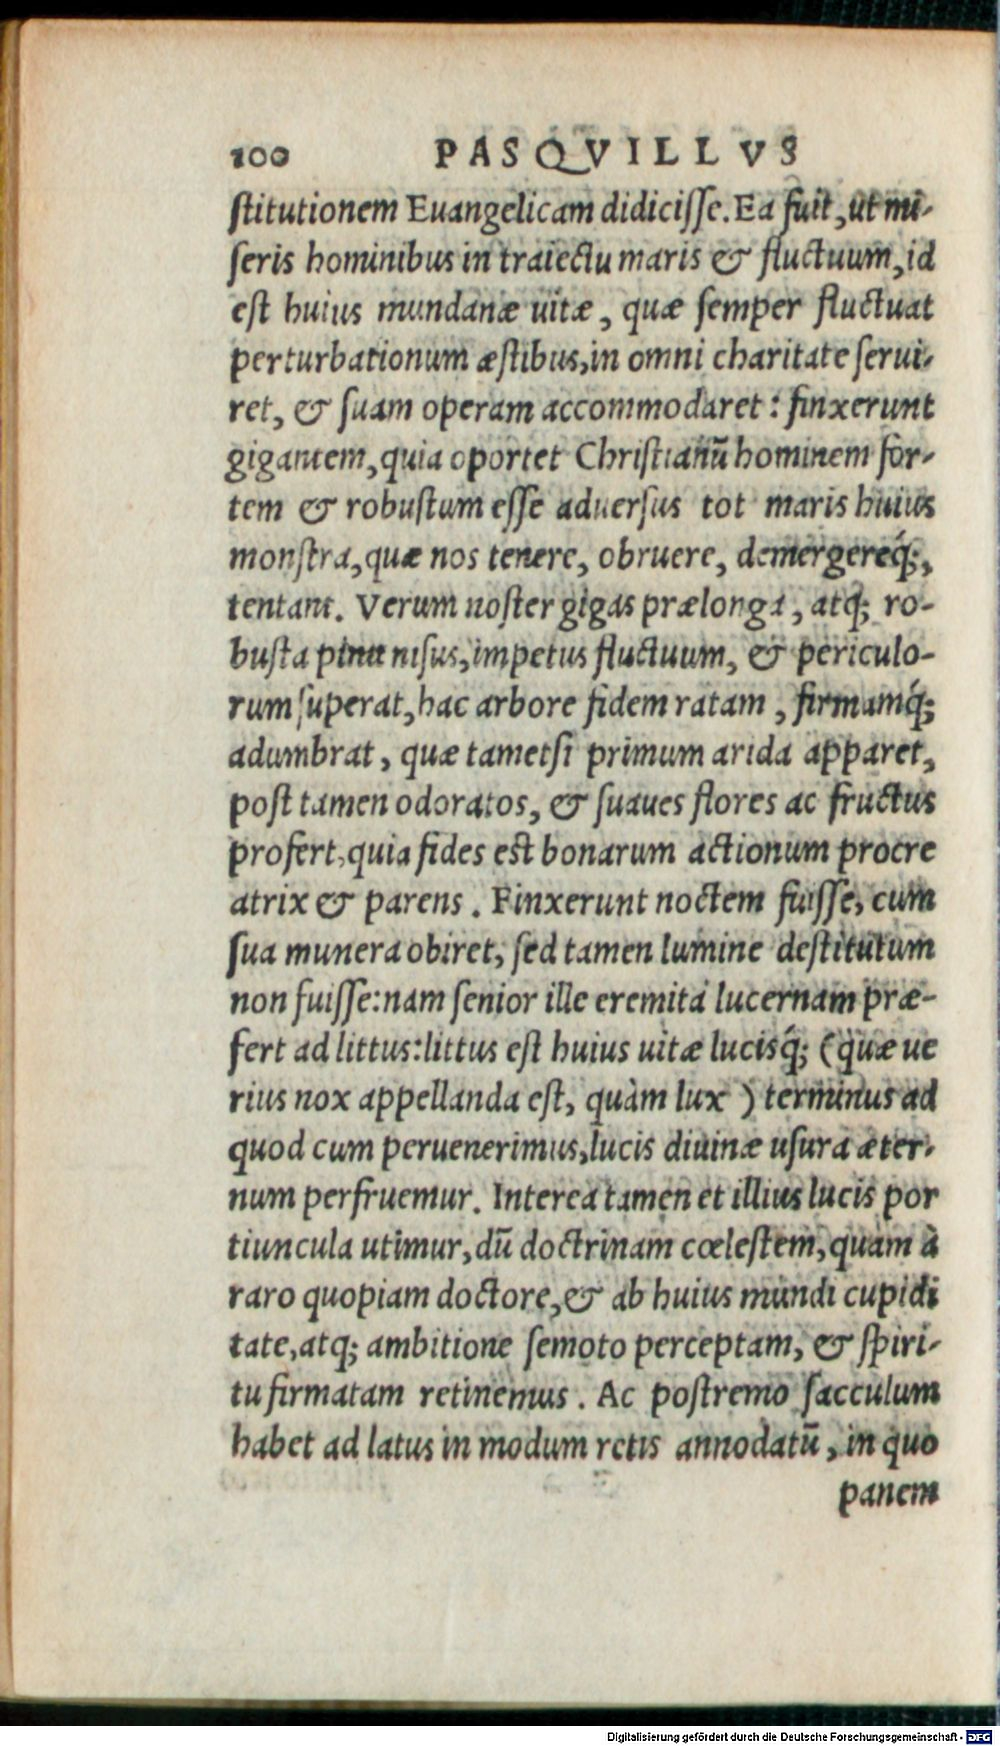 100 PASQVILLVS
ſtitutionem Euangelicam didiciſſe. Ea fuit, ut mi-
ſeris hominibus in traiectu maris & fluctuum, id
eſt huius mundanæ uitæ, quæ ſemper fluctuat
perturbationum æſtibus, in omni charitate ſerui-
ret, & ſuam operam accommodaret: finxerunt
gigantem, quia oportet Chriſtianū hominem for-
tem & robuſtum eſſe aduerſus tot maris huius
monſtra, quæ nos tenere, obruere, demergereq́;,
tentant. Verum noſter gigas prælonga, atq; ro-
buſta pinu niſus, impetus fluctuum, & periculo-
rum ſuperat, hac arbore fidem ratam, firmamq́;
adumbrat, quæ tametſi primum arida apparet,
poſt tamen odoratos, & ſuaues flores ac fructus
profert, quia fides eſt bonarum actionum procre
atrix & parens. Finxerunt noctem fuiſſe, cum
ſua munera obiret, ſed tamen lumine deſtitutum
non fuiſſe: nam ſenior ille eremita lucernam præ-
fert ad littus: littus eſt huius uitæ lucisq́; (quæ ue
rius nox appellanda eſt, quàm lux) terminus ad
quod cum peruenerimus, lucis diuinæ uſura æter-
num perfruemur. Interea tamen et illius lucis por
tiuncula utimur, dū doctrinam cœleſtem, quàm à
raro quopiam doctore, & ab huius mundi cupidi
tate, atq; ambitione ſemoto perceptam, & ſpiri-
tu firmatam retinemus. Ac poſtremo ſacculum
habet ad latus in modum retis annodatū, in quo
panem
Digitalisierung gefördert durch die Deutsche Forschungsgemeinschaft - DFG